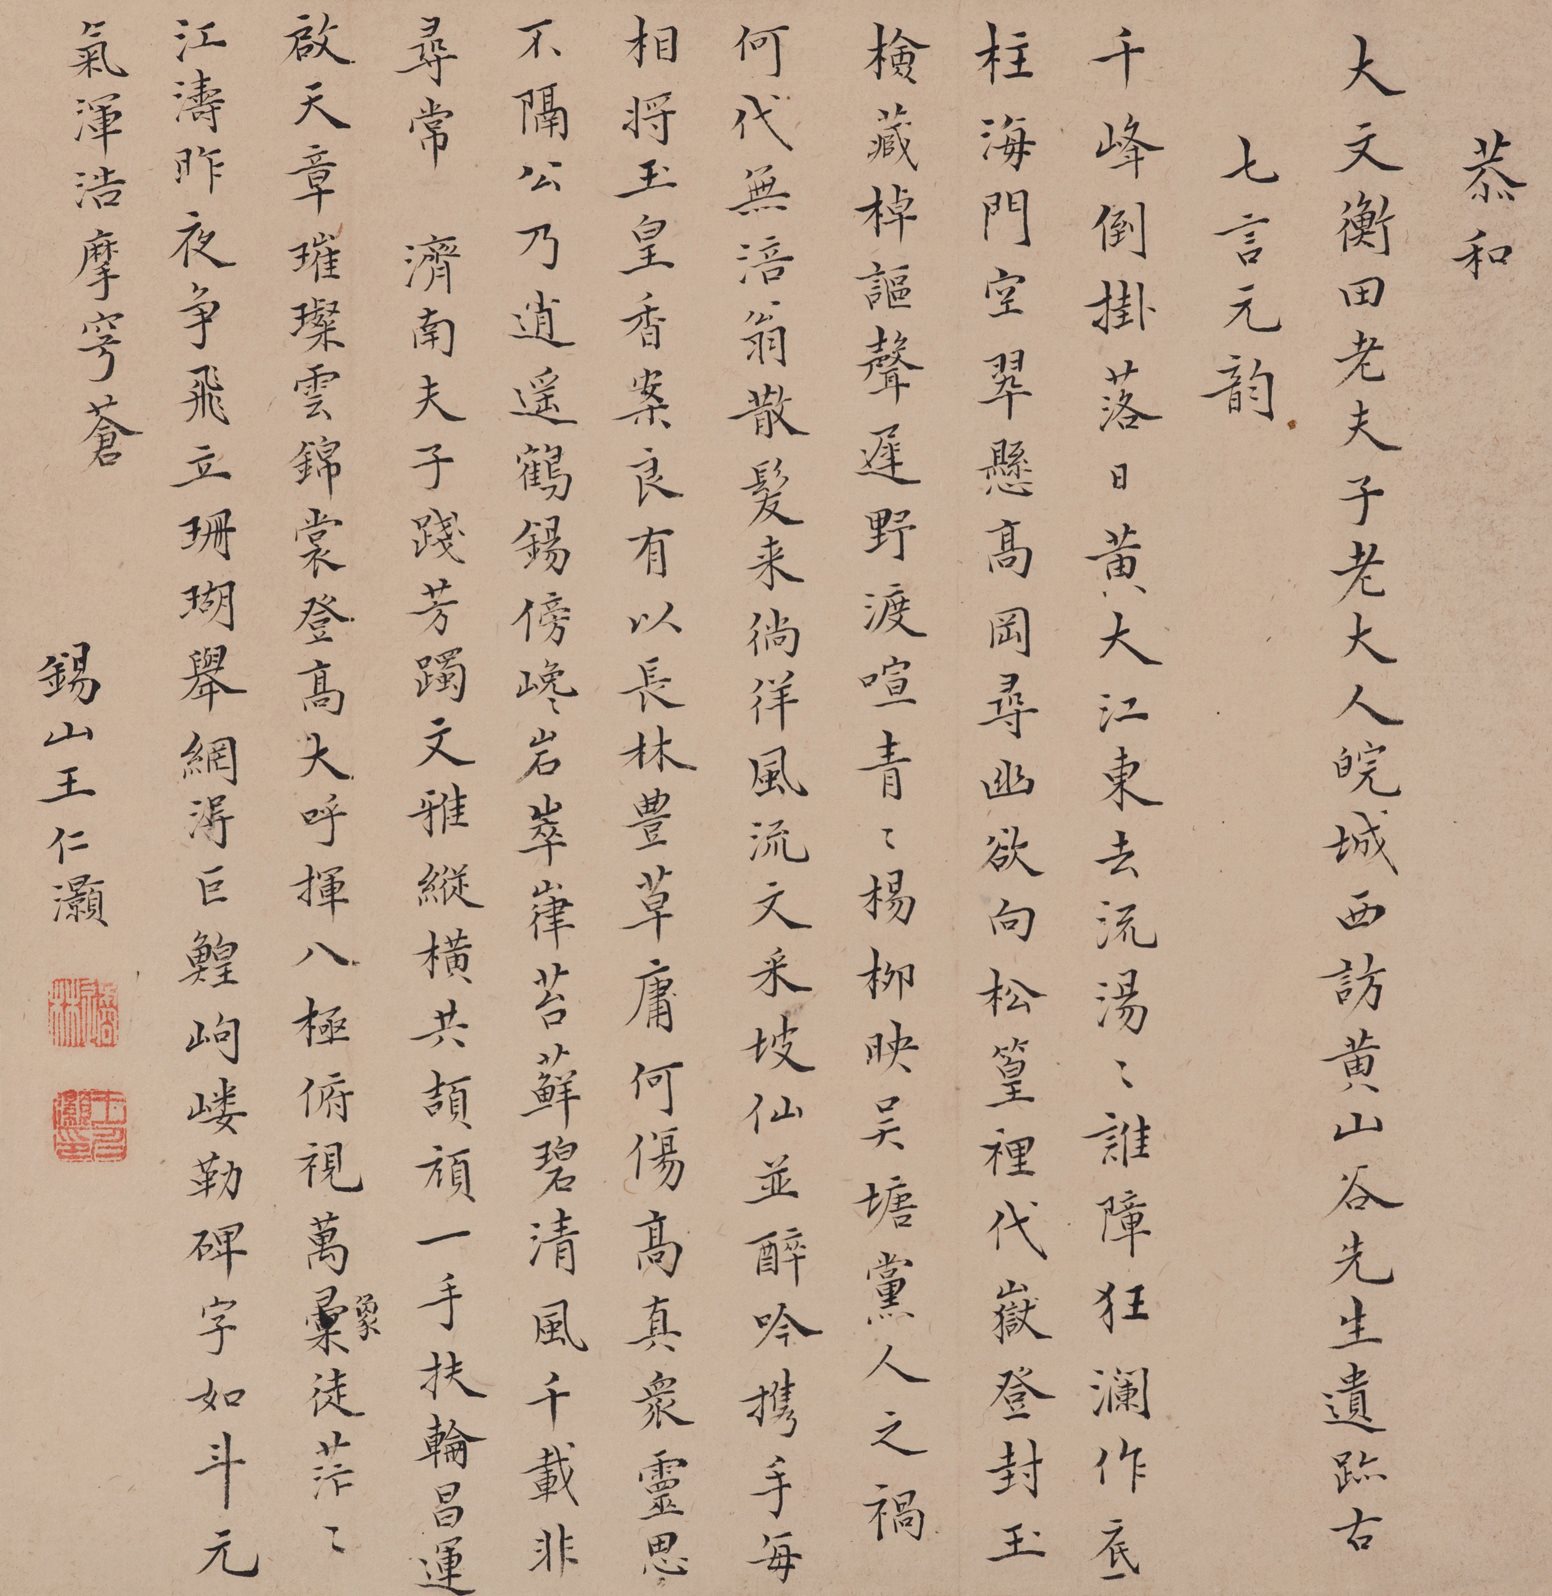 恭和
大文衡田老夫子老大人皖城西訪黃山谷先生遺跡古
七言元韵
千峰倒掛落日黃大江東去流湯〻誰障狂瀾作底
柱海門空翠懸高岡尋幽欲向松篁裡代嶽登封玉
檢藏棹謳聲遲野渡喧青〻楊柳映吴塘黨人之禍
何代無涪翁散髮来徜徉風流文采坡仙並醉吟攜手每
相将玉皇香案良有以長林豊草庸何傷高真衆靈思
不隔公乃逍遥鶴錫傍巉〻岩崒嵂苔蘚碧清風千載非
尋常 濟南夫子踐芳躅文雅縱橫共頡頏一手扶輪昌運
啟天章璀璨雲錦裳登高大呼揮八極俯視萬彙象徒茫〻
江濤昨夜争飛立珊瑚舉網淂巨鰉岣嶁勒碑字如斗元
氣渾浩摩穹蒼
錫山王仁灝